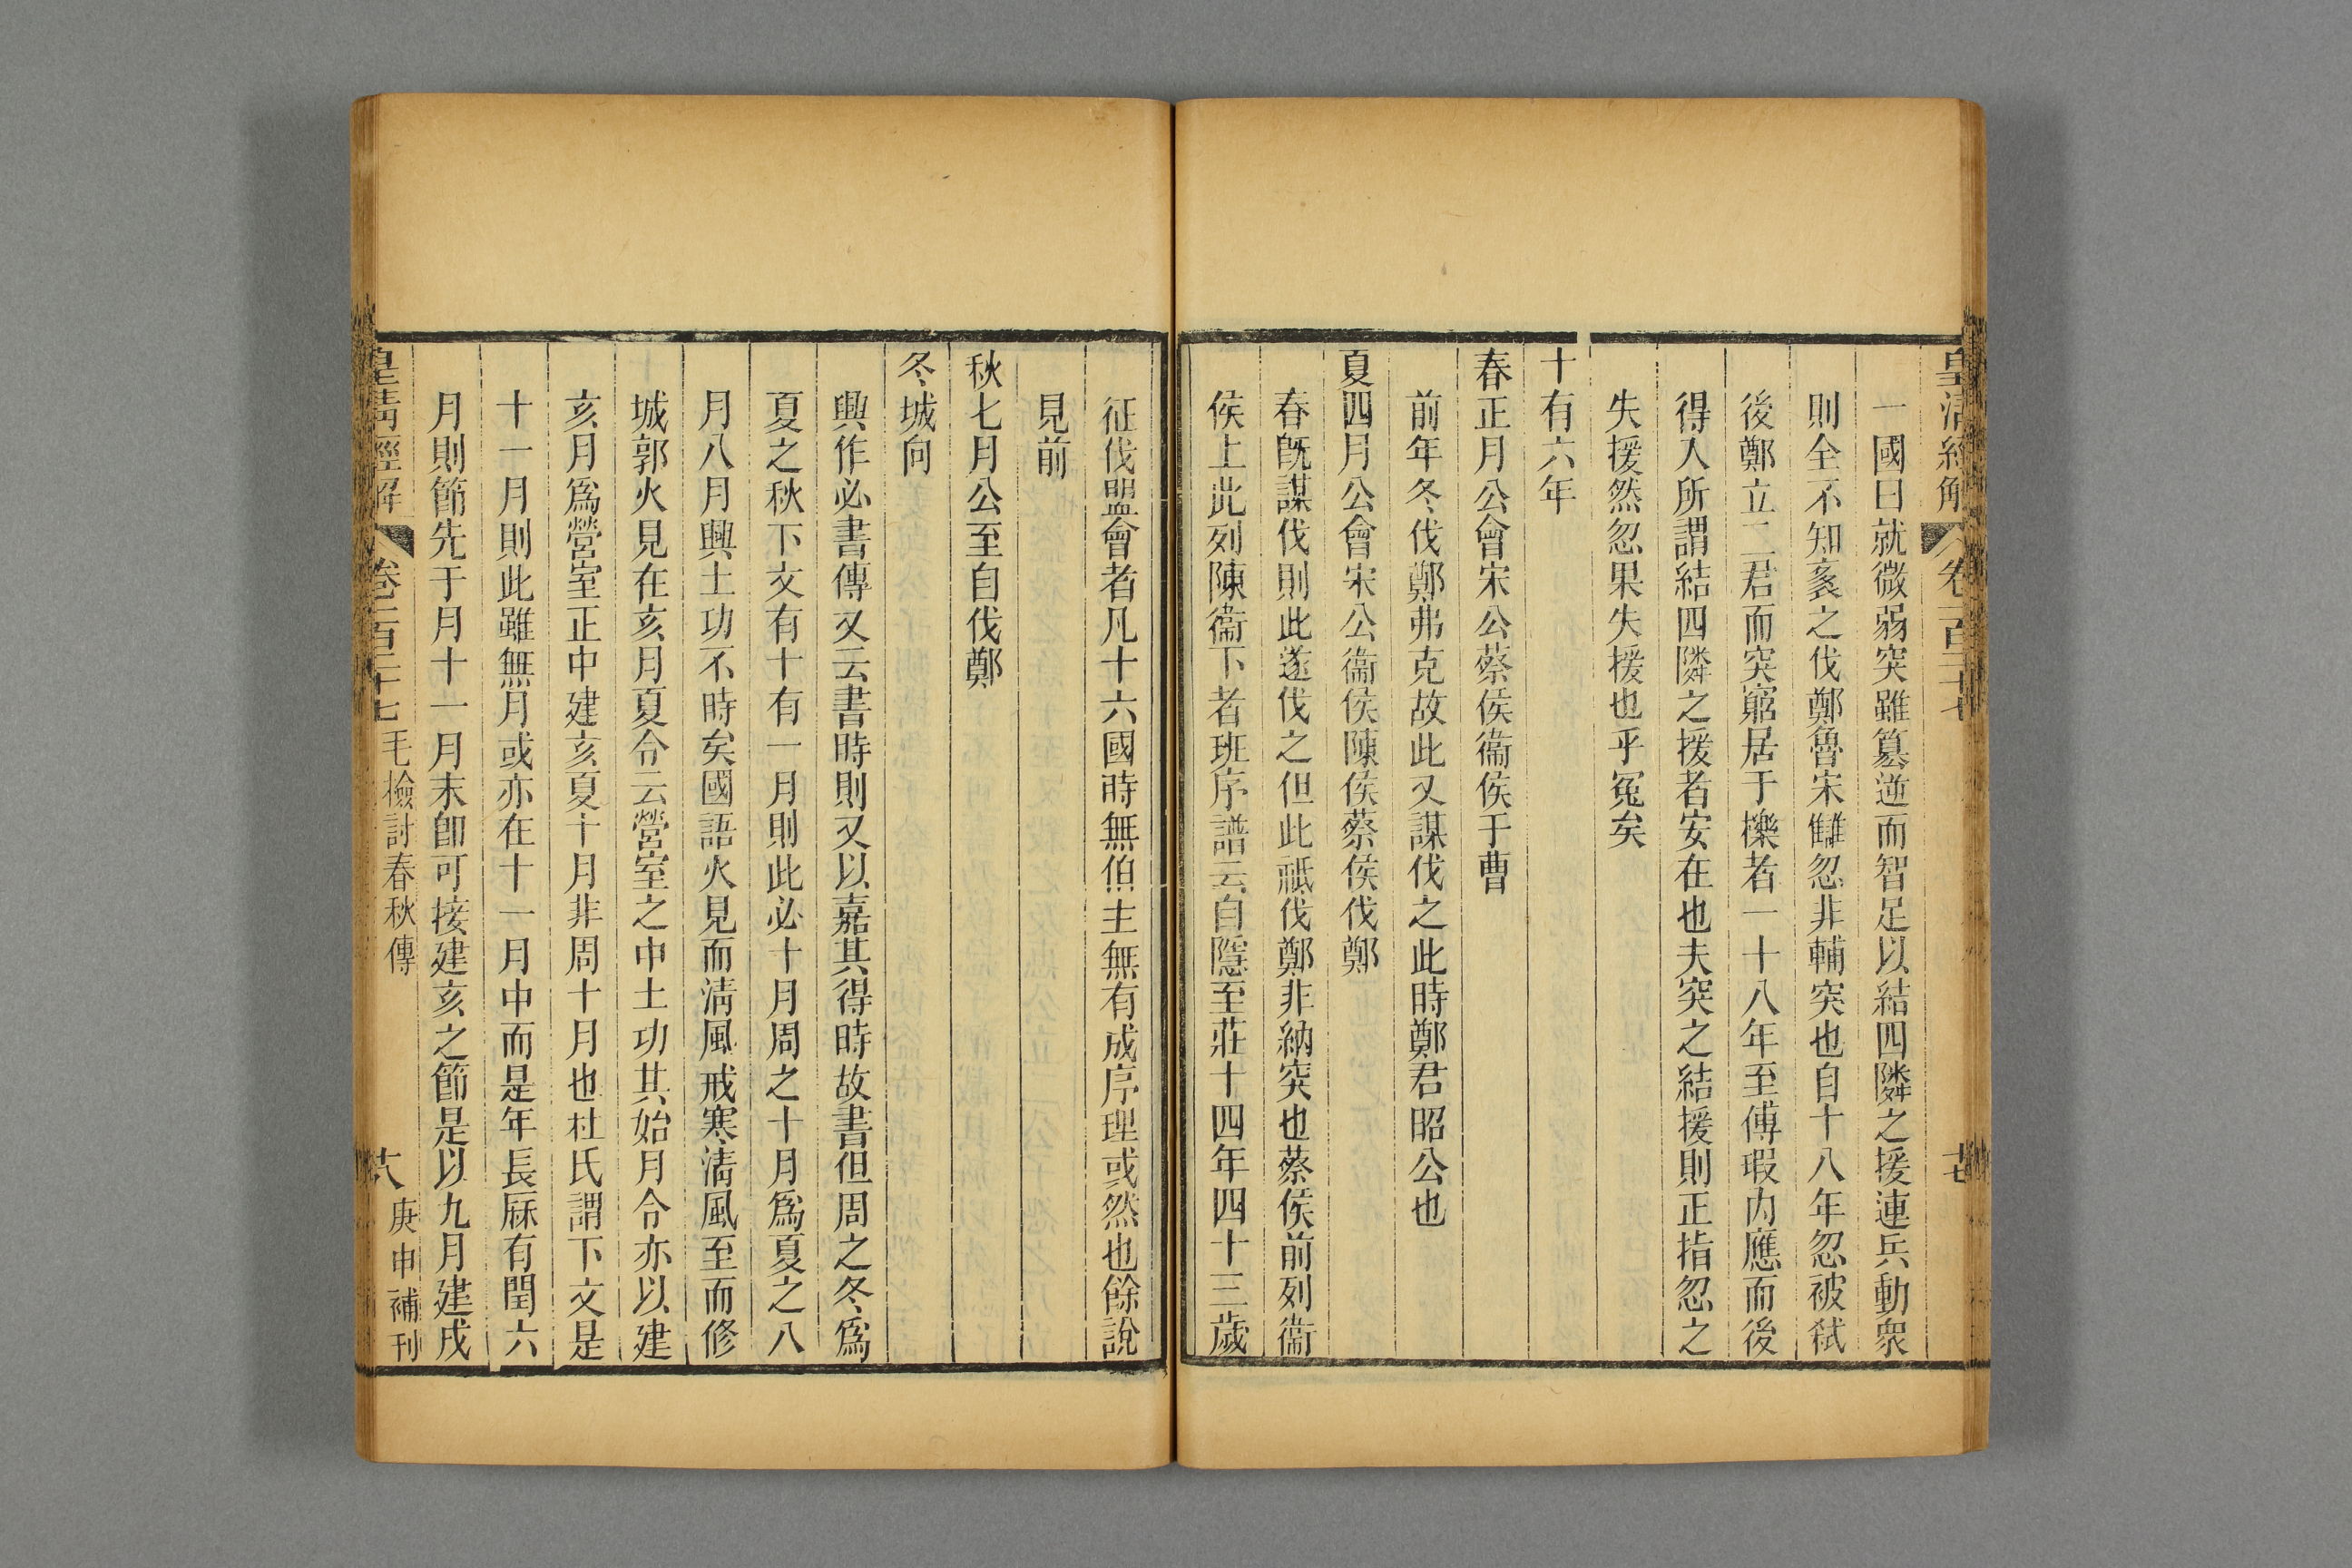 皇清經解 卷一百二十七 十七
一國曰就微弱突雖篡逆而智足以結四隣之援連兵動衆
則全不知袤之伐鄭魯宋雔忽非輔突也自十八年忽被弑
後鄭立二君而突竆居于櫟者一十八年至傅瑕內應而後
得入所謂結四隣之援者安在也夫突之結援則正指忽之
失援然忽果失援也乎冤矣
十有六年
春正月公會宋公蔡侯衞侯于曹
前年冬伐鄭弗克故此又謀伐之此時鄭君昭公也
夏四月公會宋公衞侯陳侯蔡侯伐鄭
春旣謀伐則此遂伐之但此祗伐鄭非納突也蔡侯前列衞
侯上此列陳衞下者班序譜云自隱至莊十四年四十三歲
征伐盟會者凡十六國時無伯主無有成序理或然也餘說
見前
秋七月公至自伐鄭
冬城向
興作必書傳又云書時則又以嘉其得時故書但周之冬爲
夏之秋下文有十有一月則此必十月周之十月爲夏之八
月八月興土功不時矣國語火見而淸風戒寒淸風至而修
城郭火見在亥月夏令云營室之中土功其始月令亦以建
亥月爲營室正中建亥夏十月非周十月也杜氏謂下文是
十一月則此雖無月或亦在十一月中而是年長厤有閏六
月則節先于月十一月末卽可接建亥之節是以九月建戌
皇清經解 卷一百二十七 毛檢討春秋傳 十八 庚申補刊